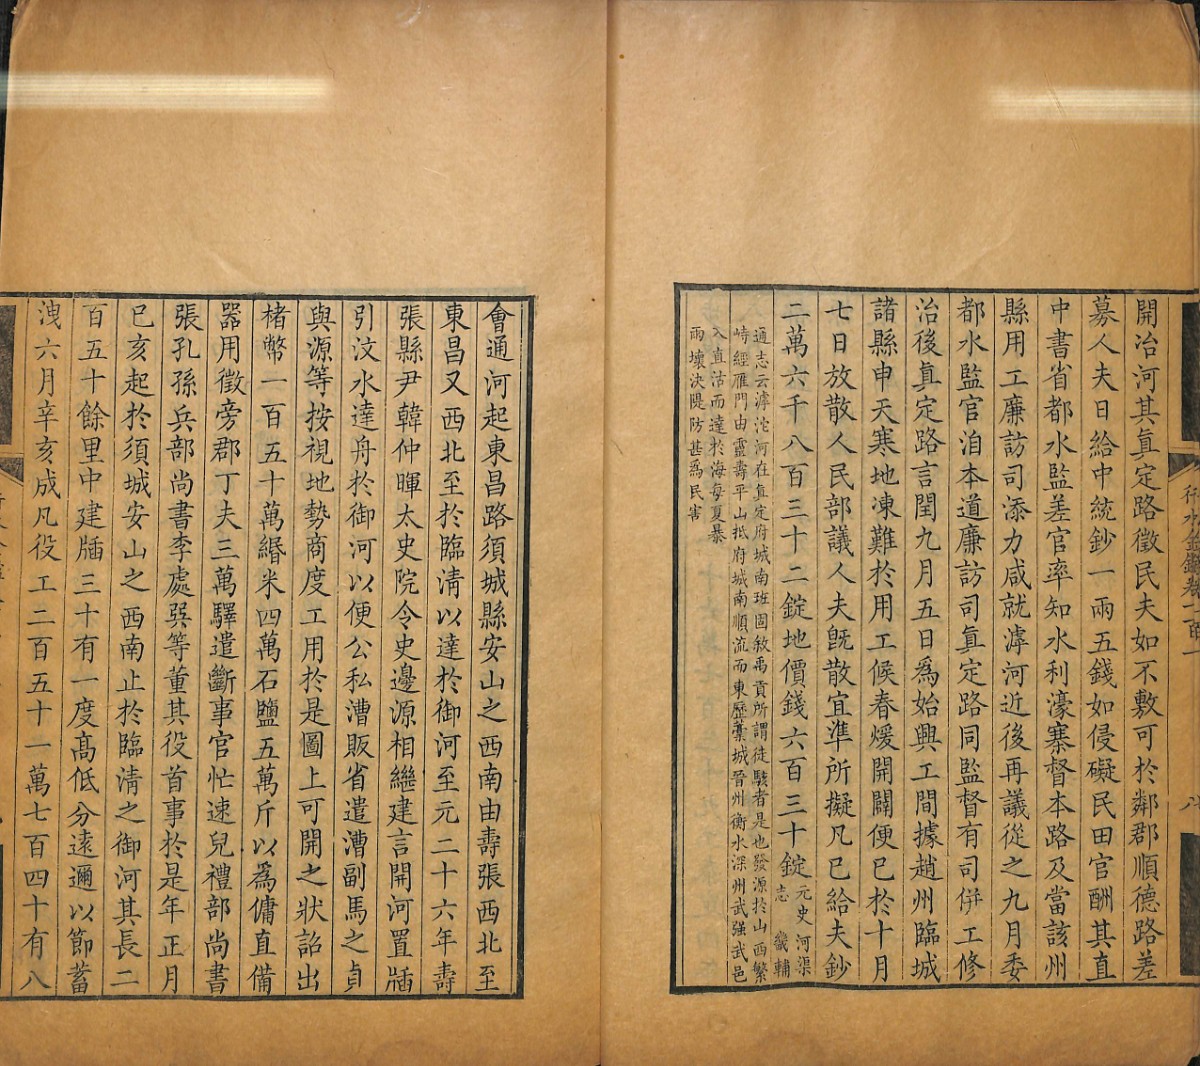 開冶河其真定路徵民夫如不敷可於鄰郡順德路差
募人夫日給中統鈔一兩五錢如侵礙民田官酬其直
中書省都水監差官率知水利濠寨督本路及當該州
縣用工廉訪司添力咸就滹河近後再議從之九月委
都水監官洎本道廉訪司真定路同監督有司併工修
治後真定路言閏九月五日爲始興工間據趙州臨城
諸縣申天寒地凍難於用工候春煖開闢便已於十月
七日放散人民部議人夫旣散宜準所擬凡已給夫鈔
二萬六千八百三十二錠地價錢六百三十錠元史河渠志 畿輔
通志云滹沱河在真定府城南班固敘禹貢所謂徒駭者是也發源於山西繁
峙經雁門由靈壽平山抵府城南順流而東歷藁城晉州衡水深州武强武邑
入直沽而達於海每夏暴
雨壞決隄防甚爲民害
會通河起東昌路須城縣安山之西南由壽張西北至
東昌又西北至於臨清以達於御河至元二十六年壽
張縣尹韓仲暉太史院令史邊源相繼建言開河置牐
引汶水達舟於御河以便公私漕販省遣漕副馬之貞
與源等按視地勢商度工用於是圖上可開之狀詔出
楮幣一百五十萬緡米四萬石鹽五萬斤以爲傭直備
器用徵旁郡丁夫三萬驛遣斷事官忙速兒禮部尚書
張孔孫兵部尚書李處巽等董其役首事於是年正月
巳亥起於須城安山之西南止於臨清之御河其長二
百五十餘里中建牐三十有一度高低分遠邇以節蓄
洩六月辛亥成凡役工二百五十一萬七百四十有八